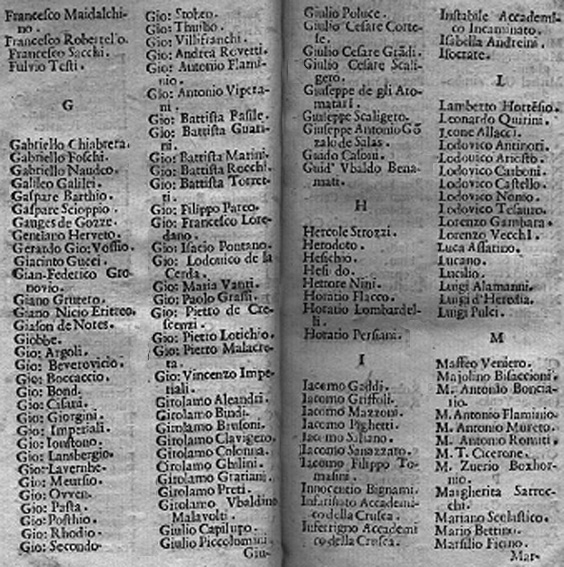 Francesco Maidalchi-
no.
Francesco Robertello.
Francesco Sacchi.
Fulvio Testi.
G
Gabriello Chiabrera.
Gabriello Foschi.
Gabriello Naudeo.
Galileo Galilei.
Gaspare Barthio.
Gaspare Scioppio.
Gauges de Gozze.
Gentiano Herveto.
Gerardo Gio: Vossio.
Giacinto Gucci.
Gian-Federico Gro-
novio.
Giano Grutero.
Giano Nicio Eritreo.
Giason de Nores.
Giobbe.
Gio: Argoli.
Gio: Beverovicio.
Gio: Boccaccio.
Gio: Bond.
Gio:
Gio: Giorgini.
Gio: Imperiali.
Gio: Ionstono.
Gio: Lansbergio.
Gio: Lavernhe.
Gio: Meursio.
Gio: Ovven.
Gio: Pasta.
Gio: Posthio.
Gio: Rhodio.
Gio: Secondo.
Gio:
Gio: Thuilio.
Gio: Villifranchi.
Gio: Andrea Rovetti.
Gio: Antonio Flami-
nio.
Gio: Antonio Vipera-
ni.
Gio: Battista Basile.
Gio: Battista Guari-
ni.
Gio: Battista Marini.
Gio: Battista Rocchi.
Gio: Battista Torret-
ti.
Gio: Filippo Pareo.
Gio: Francesco Lore-
dano.
Gio: Isacio Pontano.
Gio: Lodouico de la
Cerda.
Gio: Maria Vanti.
Gio: Paolo Grassi.
Gio: Pietro de Cre-
scenzi.
Gio: Pietro Lotichio.
Gio: Pietro Malacre-
ta.
Gio: Vincenzo Impe-
riali.
Girolamo Aleandri.
Girolamo Bindi.
Girolamo Brusoni.
Girolamo Clavigero.
Girolamo Colonna.
Girolamo Ghilini.
Girolamo Gratiani.
Girolamo Preti.
Girolamo Vbaldino
Malavolti.
Giulio Capilupo.
Giulio Piccolomini.
Giu-
Giulio Poluce.
Giulio Cesare Corte-
se.
Giulio Cesare Grādi.
Giulio Cesare Scali-
gero.
Giuseppe de gli Aro-
matarI.
Giuseppe Scaligero.
Giuseppe Antonio Gō
zales de Salas.
Guido Casoni.
Guid' Vbaldo Bena-
mati.
H
Hercole Strozzi.
Herodoto.
Hesichio.
Hesiodo.
Hettore Nini.
Horatio Flacco.
Horatio Lombardel-
li.
Horatio Persiani.
I
Iacomo Gaddi.
Iacomo Griffoli.
Iacomo Mazzoni.
Iacomo Pighetti.
Iacomo
Iacomo Sanazzaro.
Iacomo Filippo To-
masini.
Innocentio Bignami.
Infarinato Accademi-
co della Crusca.
Inferrigno Accademi
co della Crusca.
Instabile Accademi
co Incaminato.
Isabella Andreini.
Isocrate.
L
Lamberto Hortēsio.
Leonardo Quirini.
Leone Allacci.
Lodovico Antinori.
Lodouico Ariosto.
Lodovico Carboni.
Lodovico Castello.
Lodovico Nonio.
Lodovico Tesauro.
Lorenzo Gambara.
Lorenzo VecchI.
Luca Assarino.
Lucano.
Lucilio.
Luigi Alamanni.
Luigi d'Heredia.
Luigi Pulci.
M
Maffeo Veniero.
Majolino Bisaccioni.
M. Antonio Boncia-
rio.
M. Antonio Flaminio
M. Antonio Mureto.
M. Antonio Romiti.
M. T. Cicerone.
M. Zuerio Boxhor-
nio.
Margherita Sarroc-
chi.
Mariano Scolastico.
Mario Bettino.
Marsilio Ficino.
Mar-